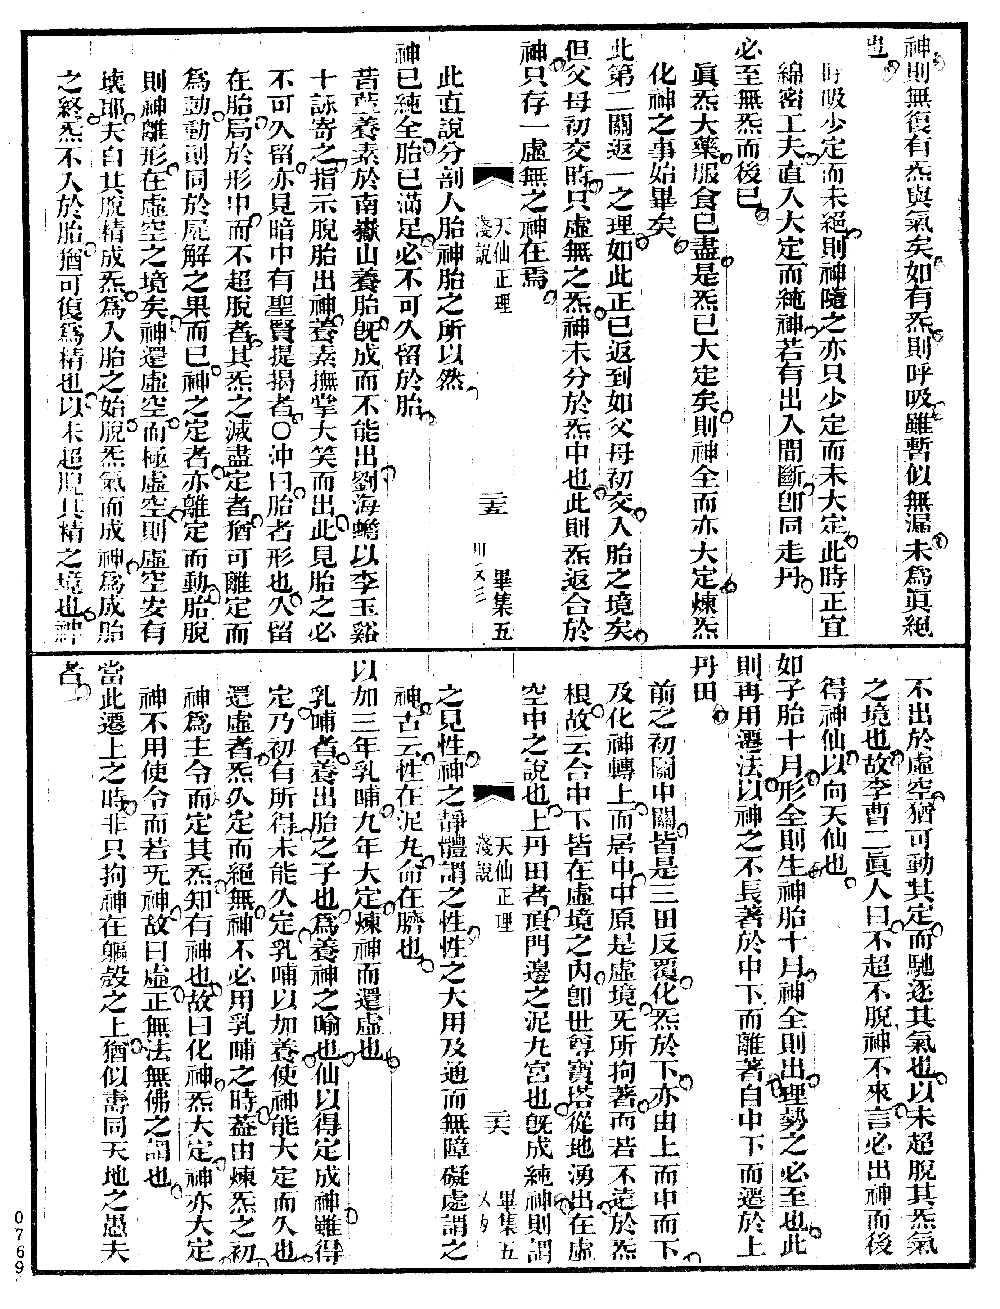 神則無復有炁與氣矣如有炁則呼吸雖暫似無漏未爲眞絕
也
呼吸少定而未絕則神隨之亦只少定而未大定此時正宜
綿密工夫直入大定而純神若有出入間斷卽同走丹
必至無炁而後已
眞炁大藥服食已盡是炁已大定矣則神全而亦大定煉炁
化神之事始畢矣
此第二關返一之理如此正已返到如父母初交入胎之境矣
但父母初交時只虛無之炁神未分於炁中也此則炁返合於
神只存一虛無之神在焉
天仙正理
淺說
二五
畢集五
此直說分剖人胎神胎之所以然
神已純全胎已滿足必不可久留於胎
昔藍養素於南嶽山養胎既成而不能出劉海蟾以李玉谿
十詠寄之指示脫胎出神養素撫掌大笑而出此見胎之必
不可久留亦見暗中有聖賢提揭者○沖曰胎者形也久留
在胎局於形中而不超脫者其炁之滅盡定者猶可離定而
爲動動則同於尸解之果而已神之定者亦離定而動胎脫
則神離形在虛空之境矣神還虛空而極虛空則虛空安有
壞耶夫自其脫精成炁爲入胎之始脫炁氣而成神爲成胎
之終炁不入於胎猶可復爲精也以未超脫其精之境也神
不出於虛空猶可動其定而馳逐其氣也以未超脫其炁氣
之境也故李曹二眞人曰不超不脫神不來言必出神而後
得神仙以向天仙也
如子胎十月形全則生神胎十月神全則出理勢之必至也此
則再用遷法以神之不長著於中下而離著自中下而遷於上
丹田
前之初關中關皆是三田反覆化炁於下亦由上而中而下
及化神轉上而居中中原是虛境无所拘著而若不遠於炁
根故云合中下皆在虛境之內卽世尊寶塔從地湧出在虛
空中之說也上丹田者頂門邊之泥丸宮也既成純神則謂
天仙正理
淺說
二六
畢集五
之見性神之靜體謂之性性之大用及通而無障礙處謂之
神古云性在泥丸命在臍也
以加三年乳哺九年大定煉神而還虛也
乳哺者養出胎之子也爲養神之喻也仙以得定成神雖得
定乃初有所得未能久定乳哺以加養使神能大定而久也
還虛者炁久定而絕無神不必用乳哺之時蓋由煉炁之初
神爲主令而定其炁知有神也故曰化神炁大定神亦大定
神不用使令而若无神故曰虛正無法無佛之謂也
當此遷上之時非只拘神在軀殼之上猶似壽同天地之愚夫
者
0769